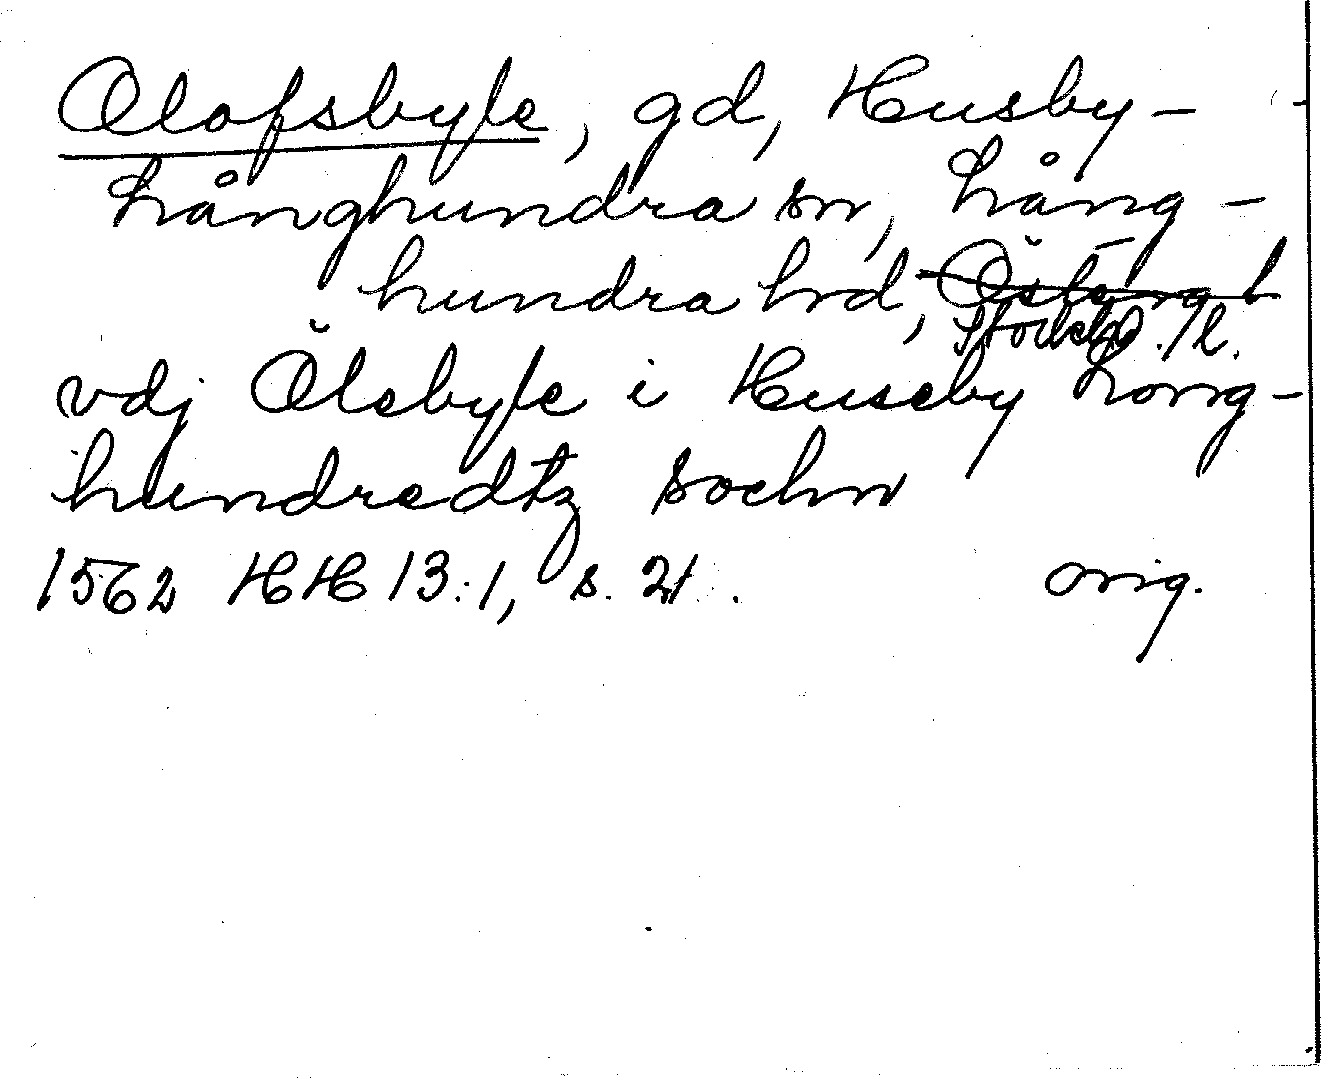 Olofsbyle, gd, Husby-
Långhundra sn, Lång-
hundra hrd, Östergl
Stockh. l.
vdj Ölsbyle i Huseby Long-
hundredtz sochn
1562 HH 13:1, s. 21. orig.